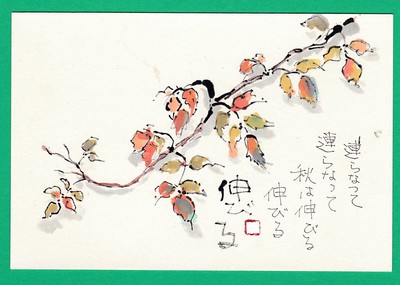 連らなって
連らなって
秋は伸びる
伸びる
伸びる